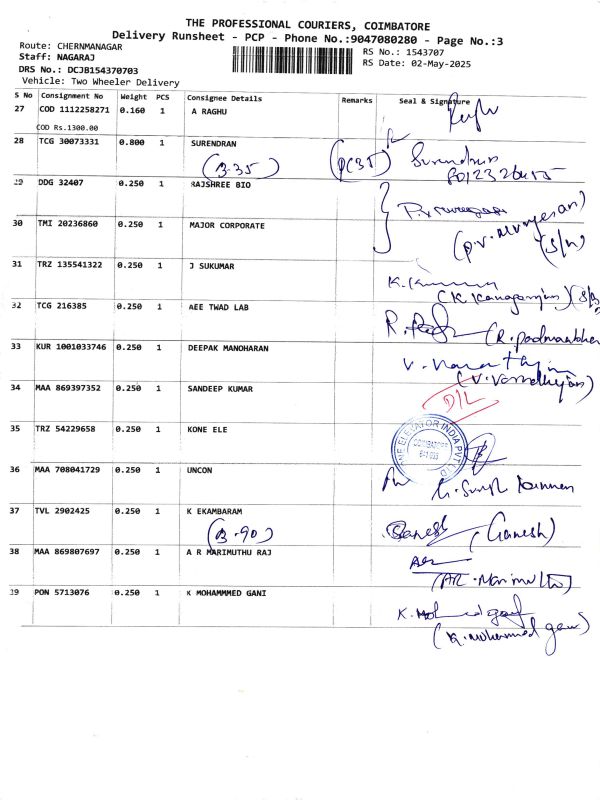 THE PROFESSIONAL COURIERS, COIMBATORE
Delivery Runsheet - PCP - Phone No.:9047080280 - Page No.:3
Route: CHERNMANAGAR
Staff: NAGARAJ
DRS No.: DCJB154370703
Vehicle: Two Wheeler Delivery
RS No.: 1543707
RS Date: 02-May-2025
S No Consignment No Weight PCS Consignee Details Remarks Seal & Signature
27 COD 1112258271 0.160 1 A RAGHU
COD Rs.1300.00
28 TCG 30073331 0.800 1 SURENDRAN
(B-35) (PC35) Surendran
29 DDG 32407 0.250 1 RAJSHREE BIO
30 TMI 20236860 0.250 1 MAJOR CORPORATE
(P.V. Murugesan)
(S/n)
31 TRZ 135541322 0.250 1 J SUKUMAR
32 TCG 216385 0.250 1 AEE TWAD LAB
(R. Padmanabhan
33 KUR 1001033746 0.250 1 DEEPAK MANOHARAN
34 MAA 869397352 0.250 1 SANDEEP KUMAR
D/L
35 TRZ 54229658 0.250 1 KONE ELE
ELEVATOR INDIA PVT LTD
COIMBATORE
36 MAA 708041729 0.250 1 UNCON
37 TVL 2902425 0.250 1 K EKAMBARAM
(B-90) Ganesh (Ganesh)
38 MAA 869807697 0.250 1 A R MARIMUTHU RAJ
(AR. Marimuthu)
39 PON 5713076 0.250 1 K MOHAMMMED GANI
(K. Mohammed gani)